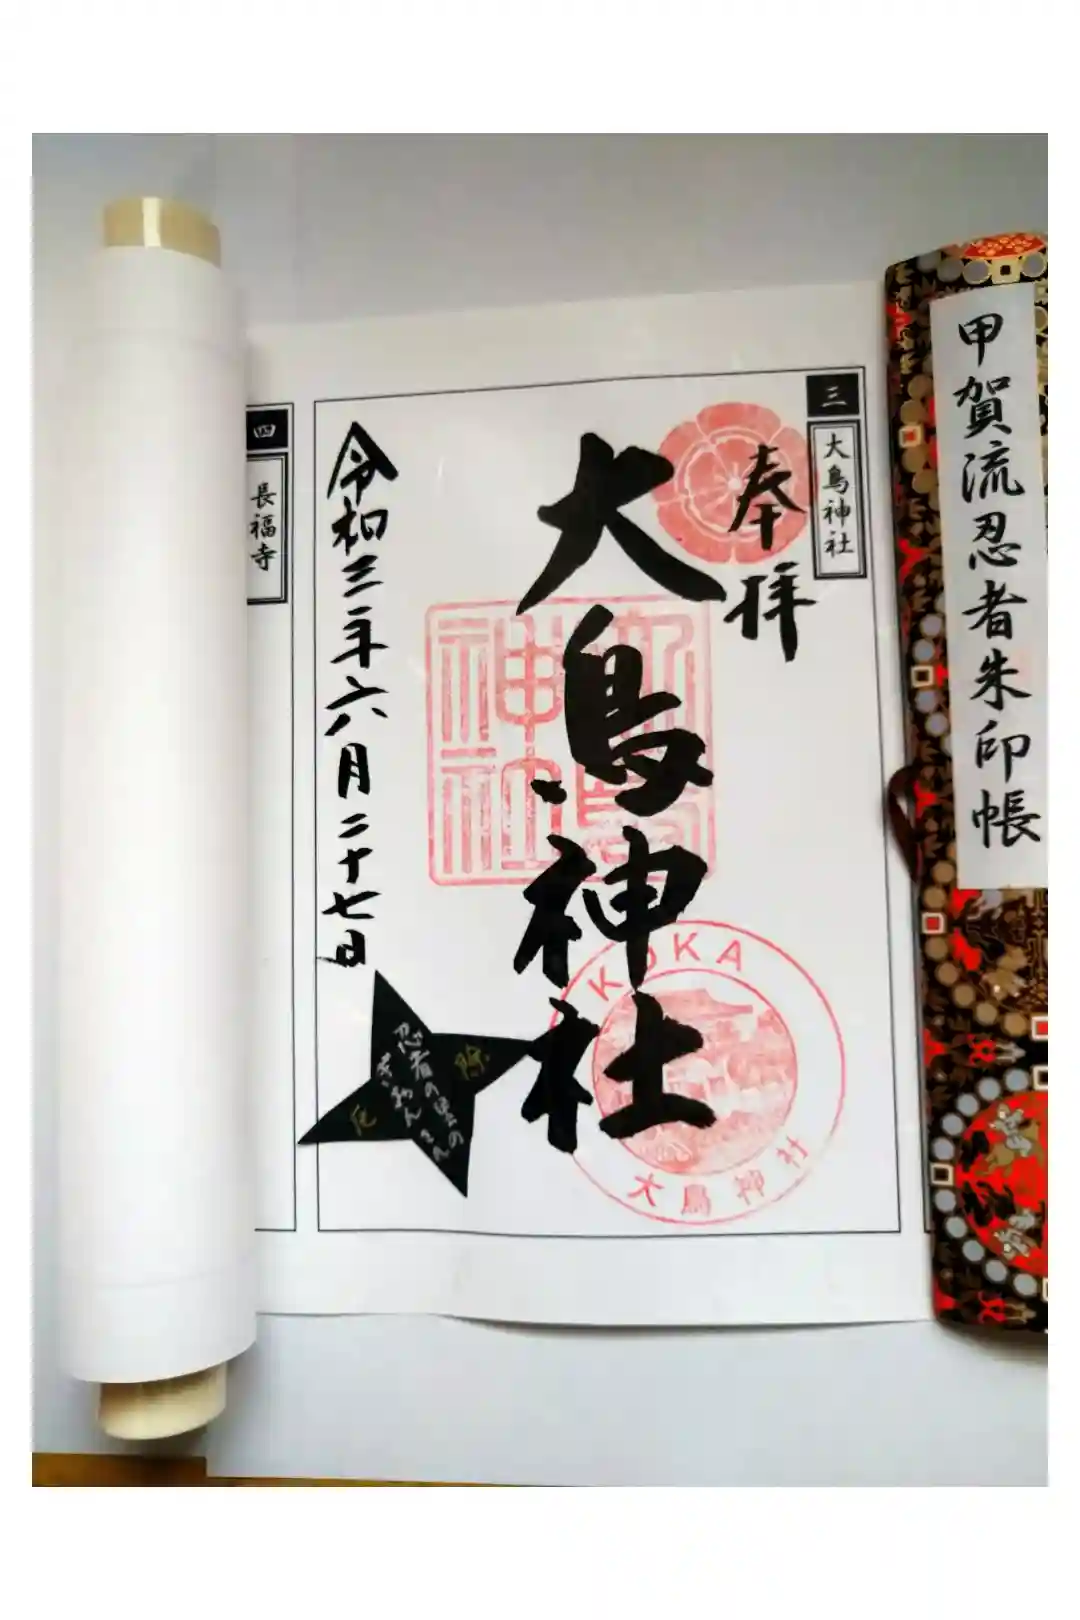 甲賀流忍者朱印帳
三
大鳥神社
奉拝
大鳥神社
令和三年六月二十七日
KOKA
大鳥神社
忍者の里の
ぎおんさん
除
厄
四
長福寺